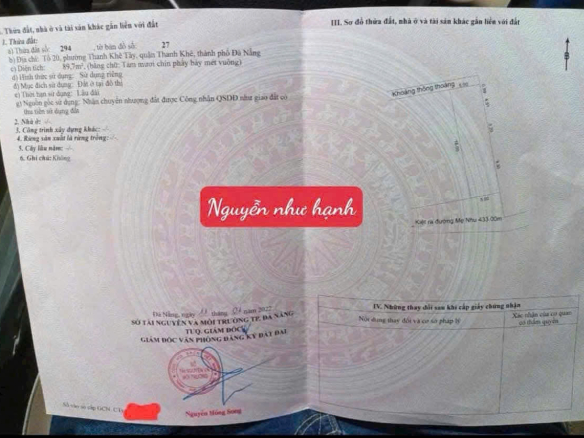 I. Thửa đất, nhà ở và tài sản khác gắn liền với đất
1. Thửa đất:
a) Thửa đất số: 294 , tờ bản đồ số: 27
b) Địa chỉ: Tổ 20, phường Thanh Khê Tây, quận Thanh Khê, thành phố Đà Nẵng
c) Diện tích: 89,7m², (bằng chữ: Tám mươi chín phẩy bảy mét vuông)
d) Hình thức sử dụng: Sử dụng riêng
đ) Mục đích sử dụng: Đất ở tại đô thị
e) Thời hạn sử dụng: Lâu dài
g) Nguồn gốc sử dụng: Nhận chuyển nhượng đất được Công nhận QSDĐ như giao đất có
thu tiền sử dụng đất.
2. Nhà ở: -/-
3. Công trình xây dựng khác: -/-
4. Rừng sản xuất là rừng trồng: -/-
5. Cây lâu năm: -/-
6. Ghi chú: Không
Nguyễn như hạnh
Đà Nẵng, ngày tháng năm 2022
SỞ TÀI NGUYÊN VÀ MÔI TRƯỜNG TP. ĐÀ NẴNG
TUQ. GIÁM ĐỐC
GIÁM ĐỐC VĂN PHÒNG ĐĂNG KÝ ĐẤT ĐAI
Nguyễn Hồng Song
Số vào sổ cấp GCN:
III. Sơ đồ thửa đất, nhà ở và tài sản khác gắn liền với đất
B
Khoảng thông thoáng
Kiệt ra đường Mẹ Nhu
IV. Những thay đổi sau khi cấp giấy chứng nhận
Nội dung thay đổi và cơ sở pháp lý
Xác nhận của cơ quan
có thẩm quyền